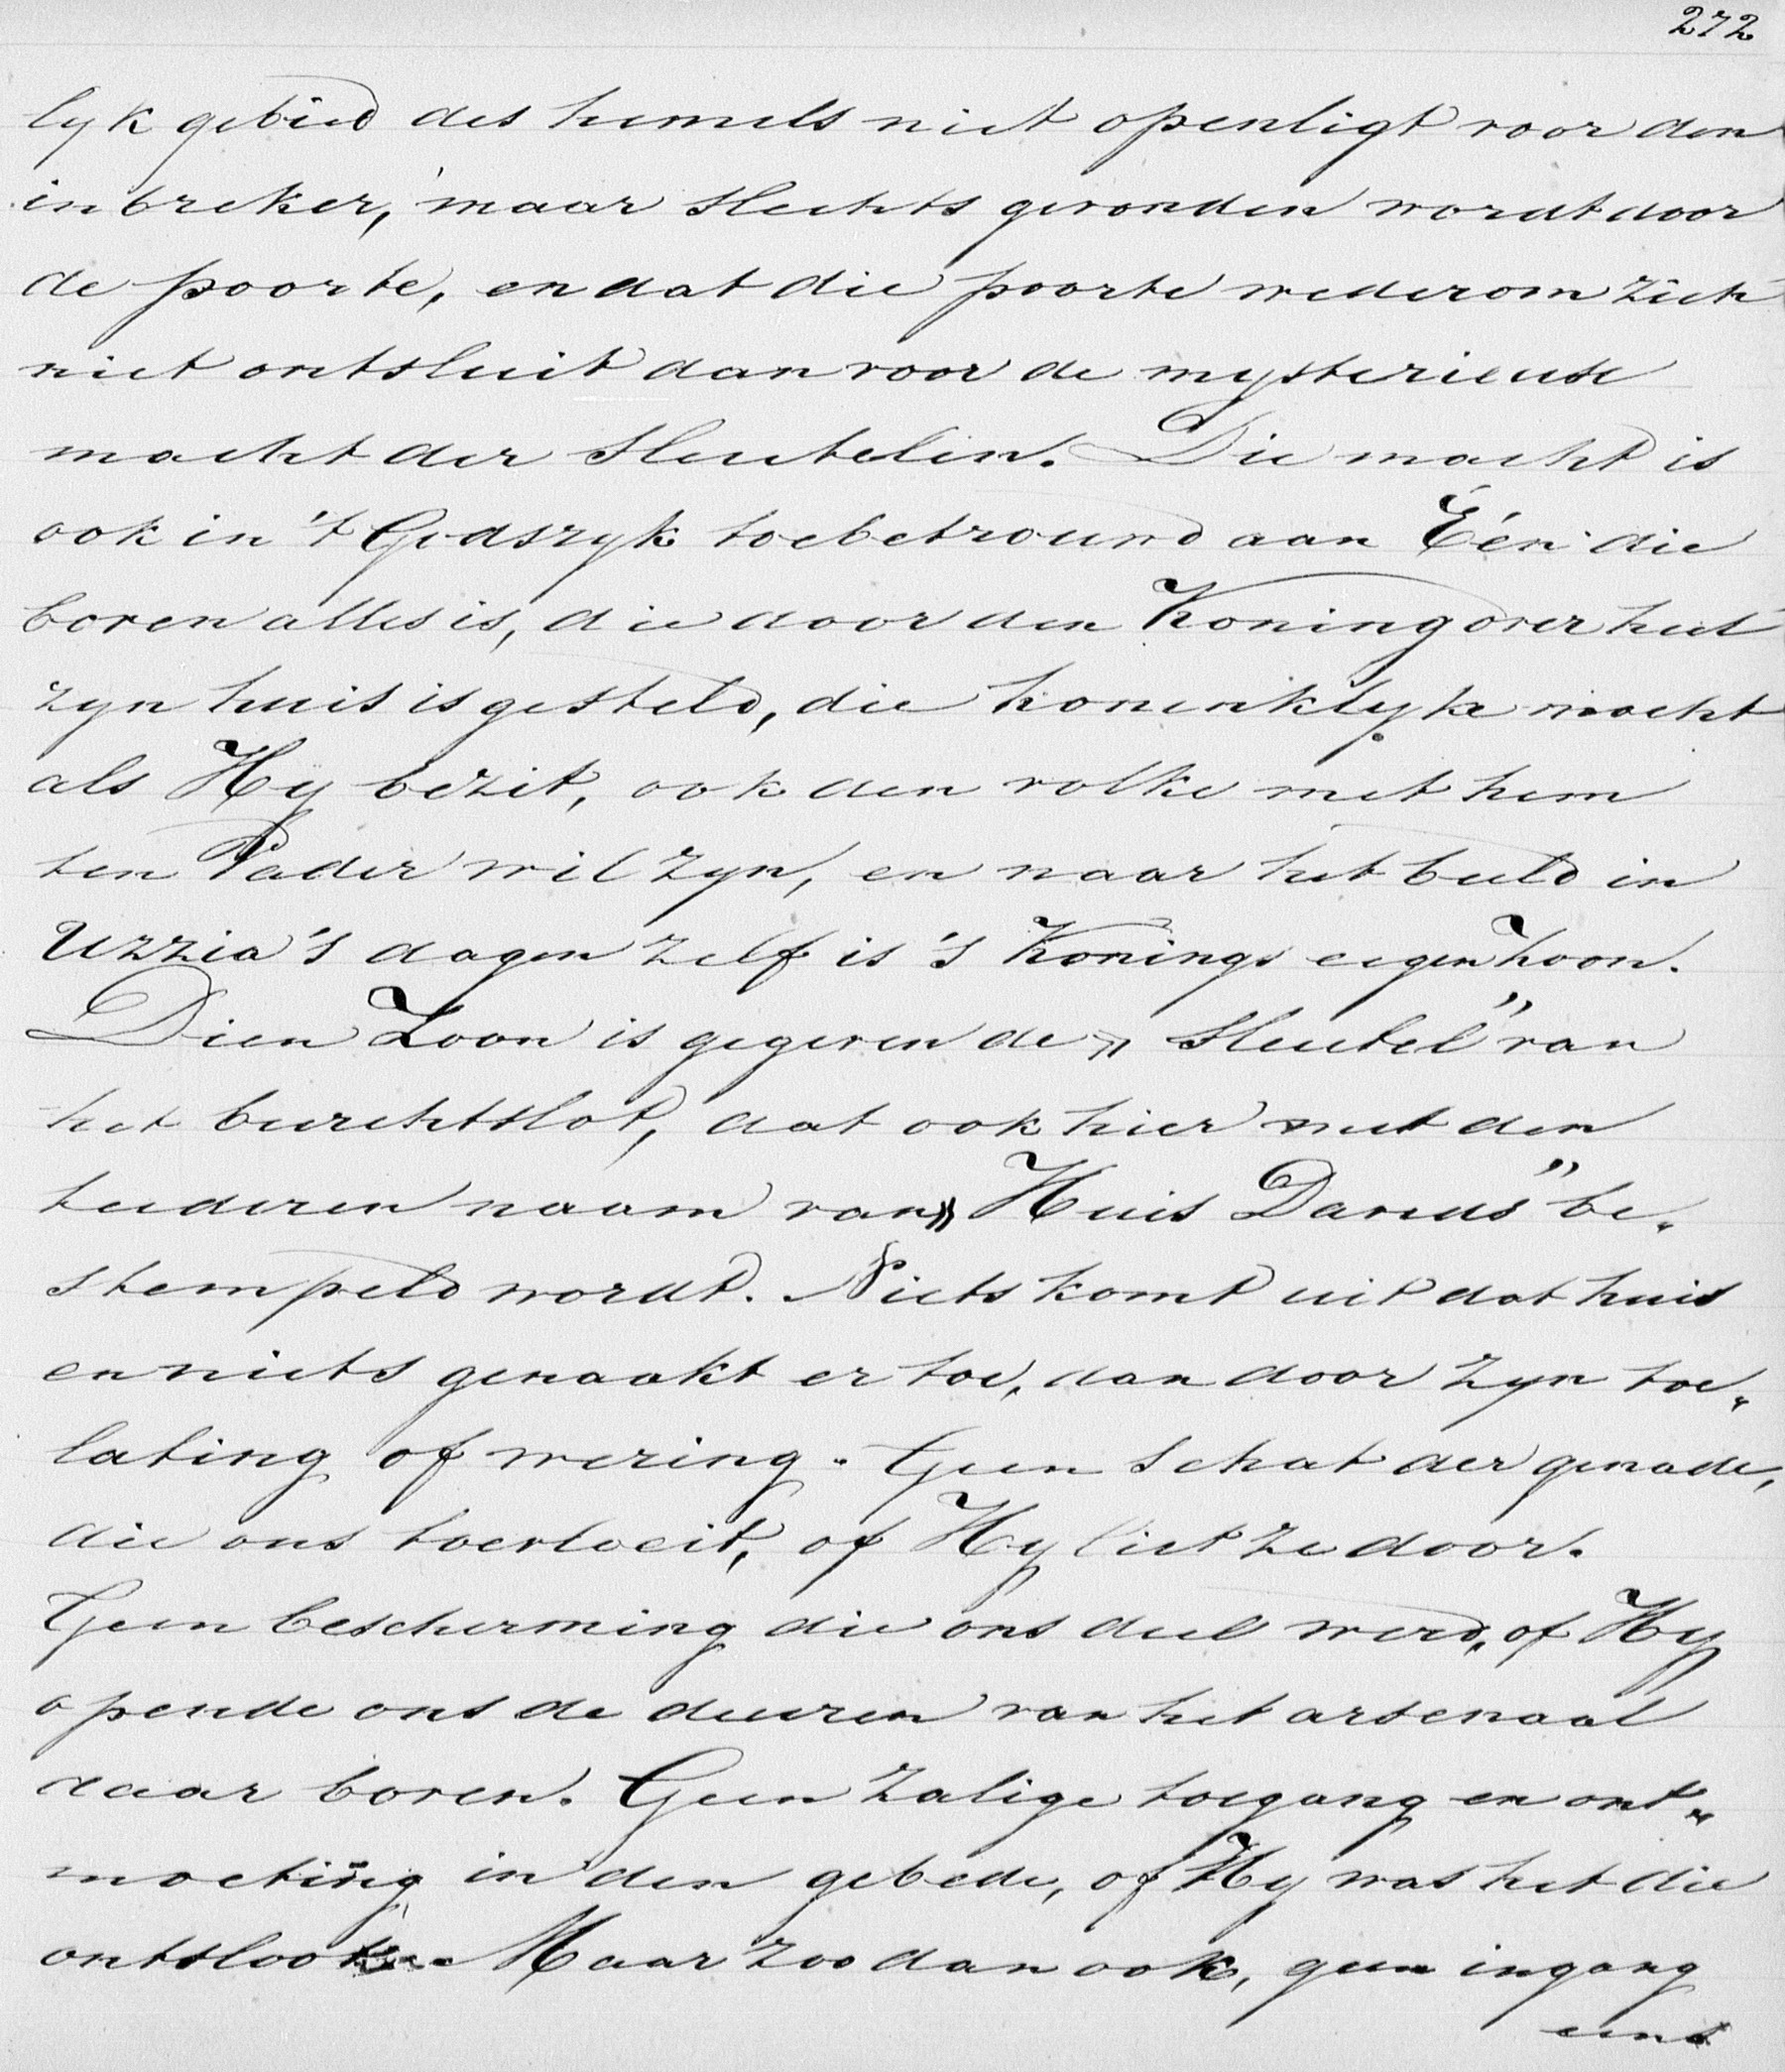 272
lyk gebied des hemels niet openligt voor den
inbreker, maar slechts gevonden wordt door
de poorte, en dat die poorte wederom zich
niet ontsluit dan voor de mysterieuse
macht der sleutelen. Die macht is
ook in 't Godsryk toebetrouwd aan Eén die
boven alles is, die door den Koning over heel
zyn huis is gesteld, die koninklyke macht
als Hy bezit, ook den volke met hem
ten Vader wil zyn, en naar het beeld in
Uzzia's dagen zelf is 's Konings eigen zoon.
Dien Zoon is gegeven de „Sleutel” van
het burchtslot, dat ook hier met den
teederen naam van „Huis Davids” be„
stempeld wordt. Niets komt uit dat huis
en niets genaakt er toe, dan door zyn toe„
lating of wering. Geen schat der genade,
die ons toevloeit, of Hy liet ze door.
Geen bescherming die ons deel werd, of Hy
opende ons de deuren van het arsenaal
daar boven. Geen zalige toegang en ont„
moeting in den gebede, of Hy was het die
ontsloot. Maar zoo dan ook, geen ingang
eens